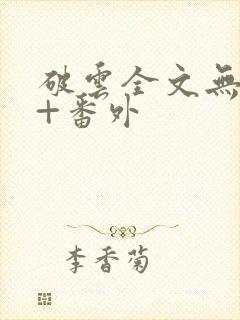 破雲全文無
+番外
李香菊